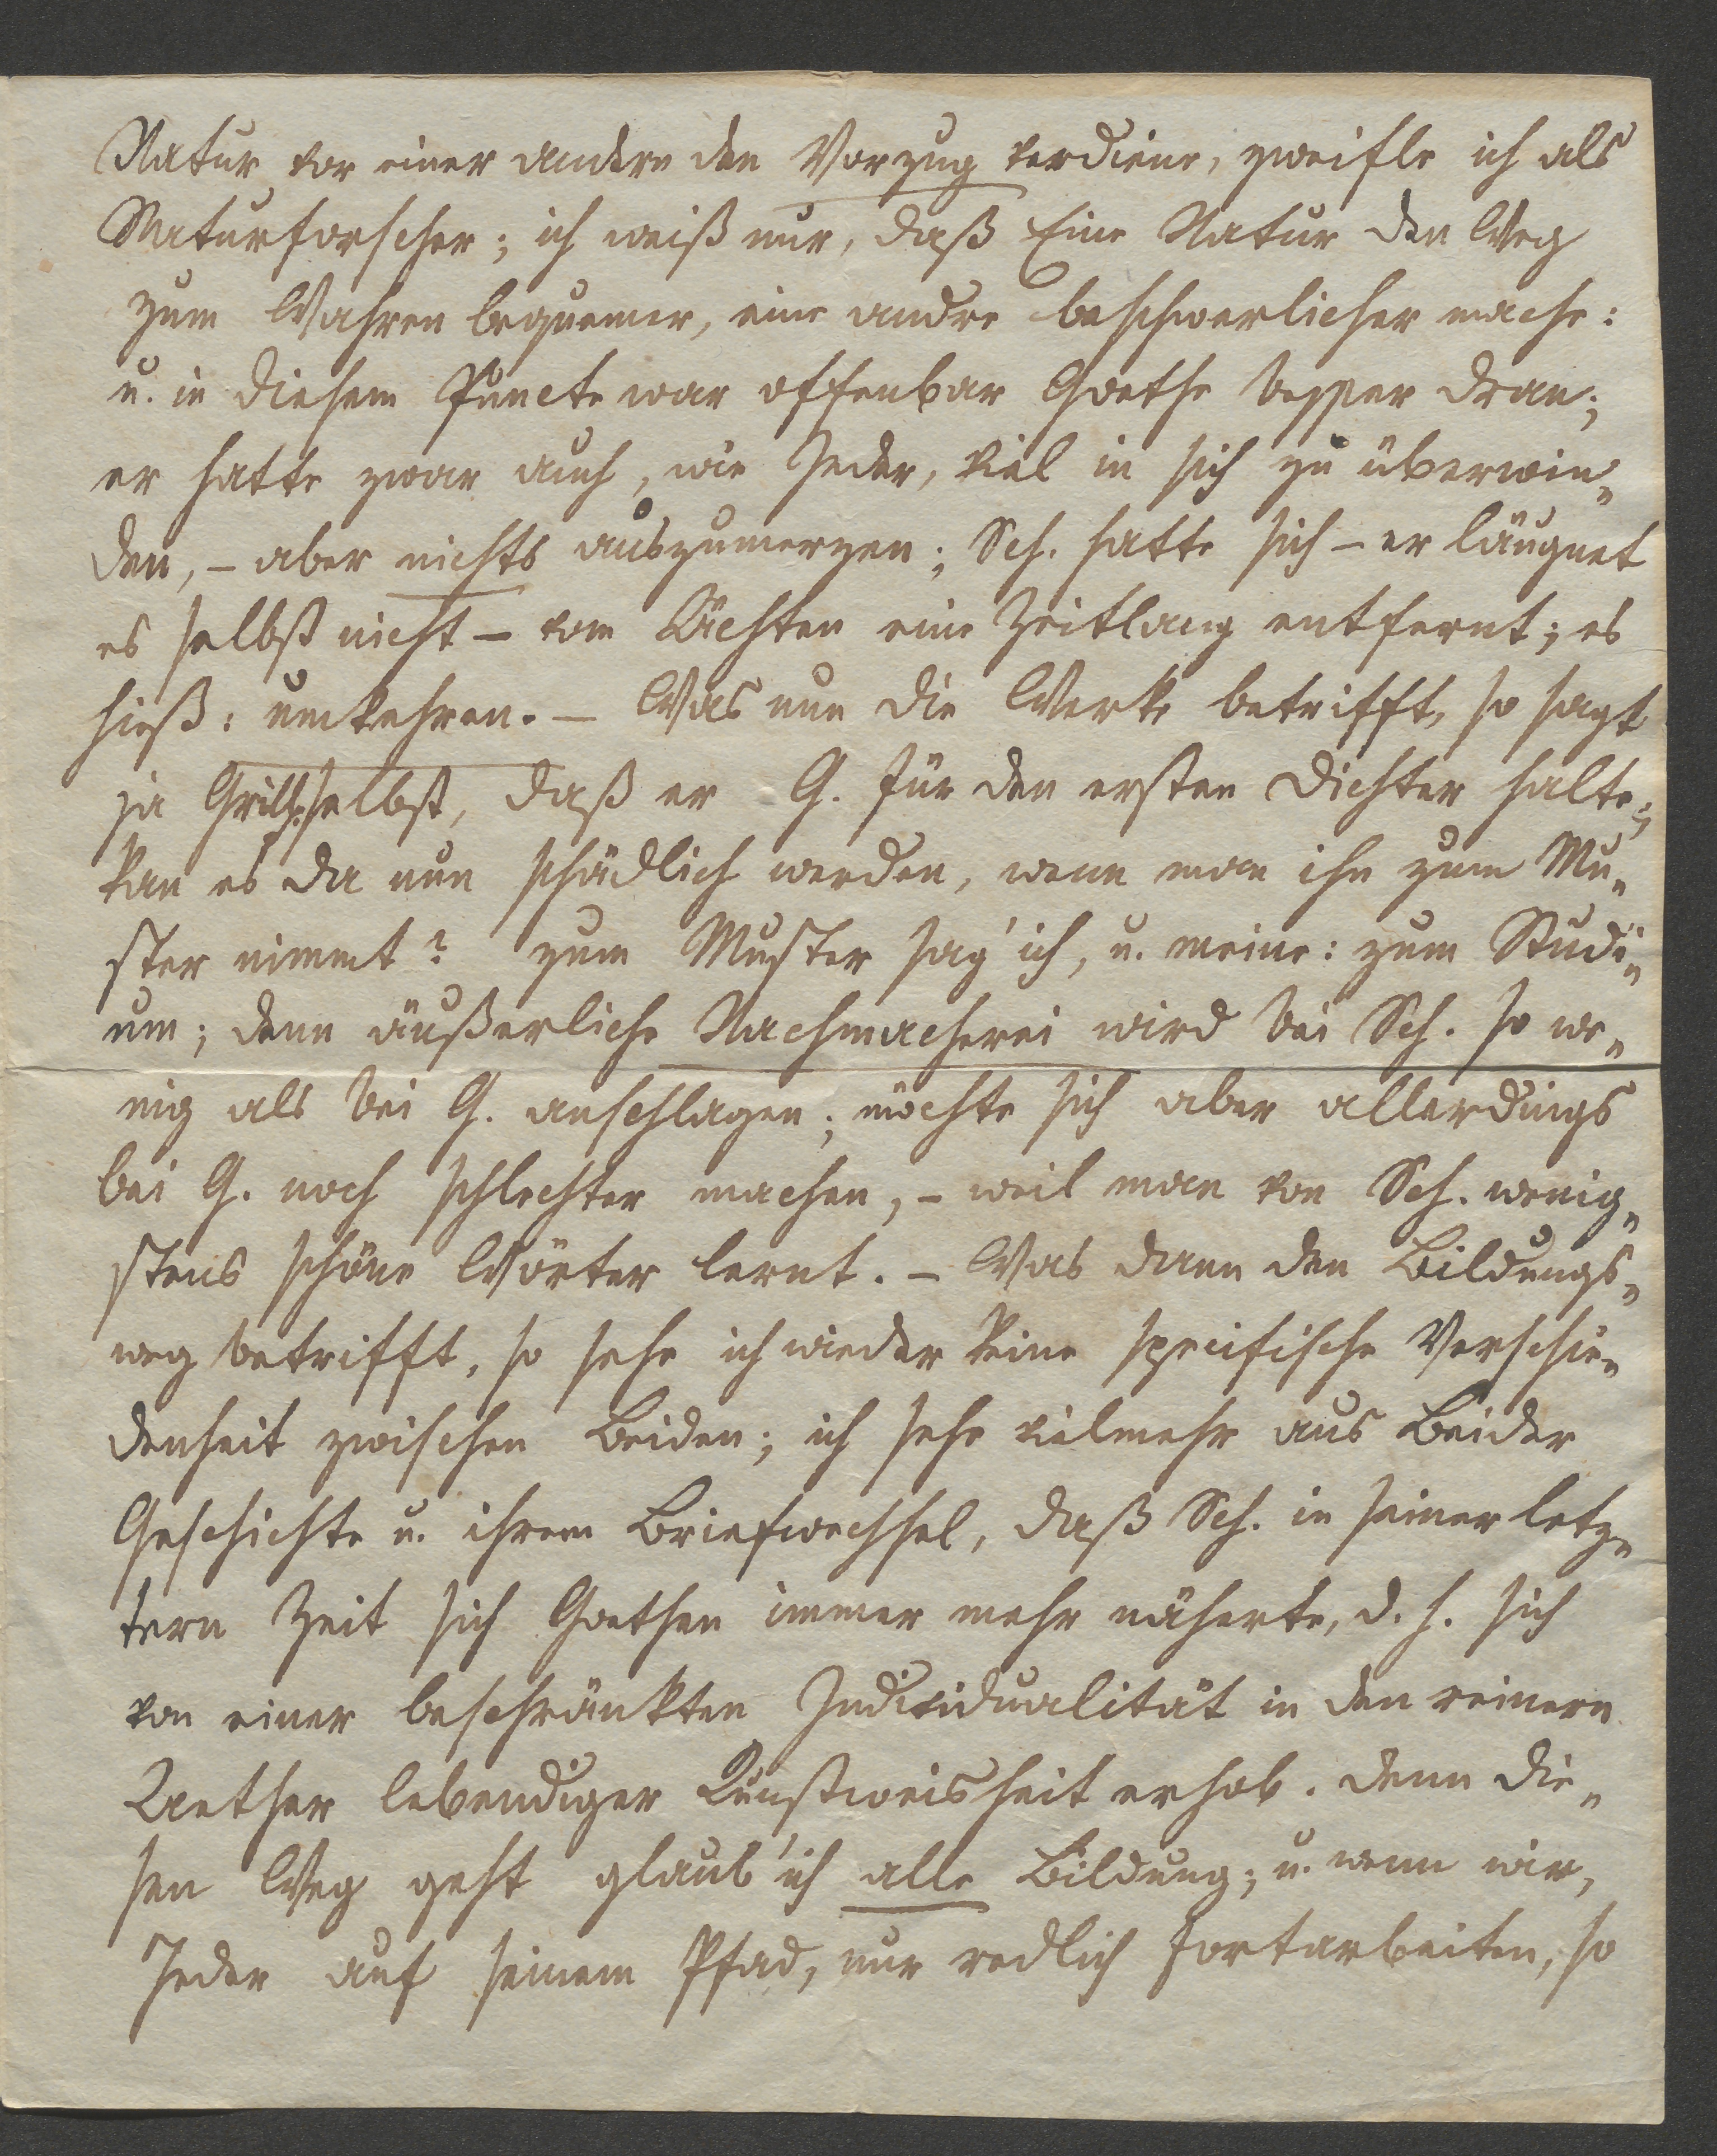 Natur vor einer andern den Vorzug verdiene, zweifle ich als
Naturforscher; ich weiß nur, daß Eine Natur den Weg
zum Wahren bequemer, eine andre beschwerlicher mache:
u. in diesem Puncte war offenbar Goethe besser dran;
er hatte zwar auch, wie Jeder, viel in sich zu überwin-
den, – aber nichts auszumerzen; Sch. hatte sich – er läugnet
es selbst nicht – vom Ächten eine Zeitlang entfernt; es
hieß: umkehren. – Was nun die Werke betrifft, so sagt
ja Grillp. selbst, daß er G. für den ersten Dichter halte;
kan es da nun schädlich werden, wenn man ihn zum Mu-
ster nimmt? zum Muster sag' ich, u. meine: zum Studi-
um; denn äußerliche Nachmacherei wird bei Sch. so we-
nig als bei G. anschlagen; möchte sich aber allerdings
bei G. noch schlechter machen, – weil man von Sch. wenig-
stens schöne Wörter lernt. – Was dann den Bildungs-
weg betrifft, so sehe ich wieder keine specifische Verschie-
denheit zwischen Beiden; ich sehe vielmehr aus Beider
Geschichte u. ihrem Briefwechsel, daß Sch. in seiner letz-
tern Zeit sich Goethen immer mehr näherte, d. h. sich
von einer beschränkten Individualität in den reinern
Aether lebendiger Kunstweisheit erhob. Denn die-
sen Weg geht glaub' ich alle Bildung; u. wenn wir,
Jeder auf seinem Pfad, nur redlich fortarbeiten, so